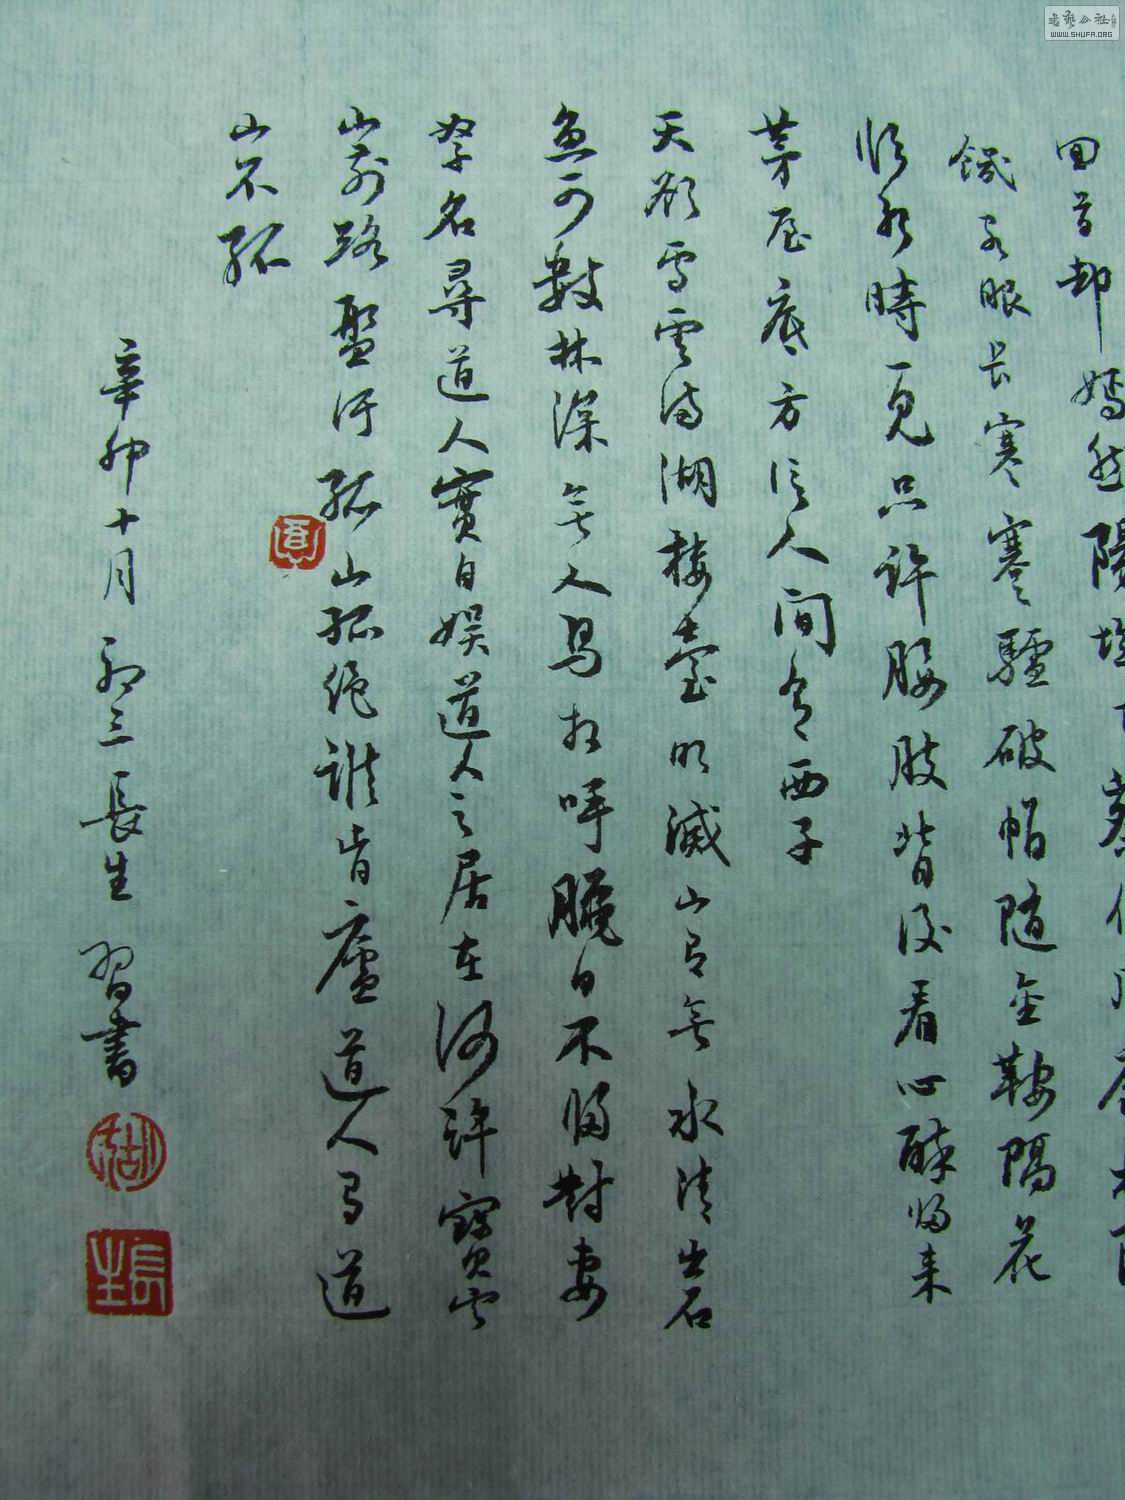 書藝公社
WWW.SHUFA.ORG
回首却嫣然陽城下蔡俱風靡杜陵
饑客眼長寒蹇驢破帽隨金鞍隔花
臨水時一見只許腰肢背後看心醉歸来
茅屋底方信人間有西子
天欲雪雲滿湖樓臺明滅山有無水清出石
魚可數林深無人鳥相呼臘日不歸對妻
孥名尋道人實自娛道人之居在何許寶雲
山前路盤紆孤山孤絕誰肯廬道人有道
山不孤
辛卯十月初三長生習書
長生